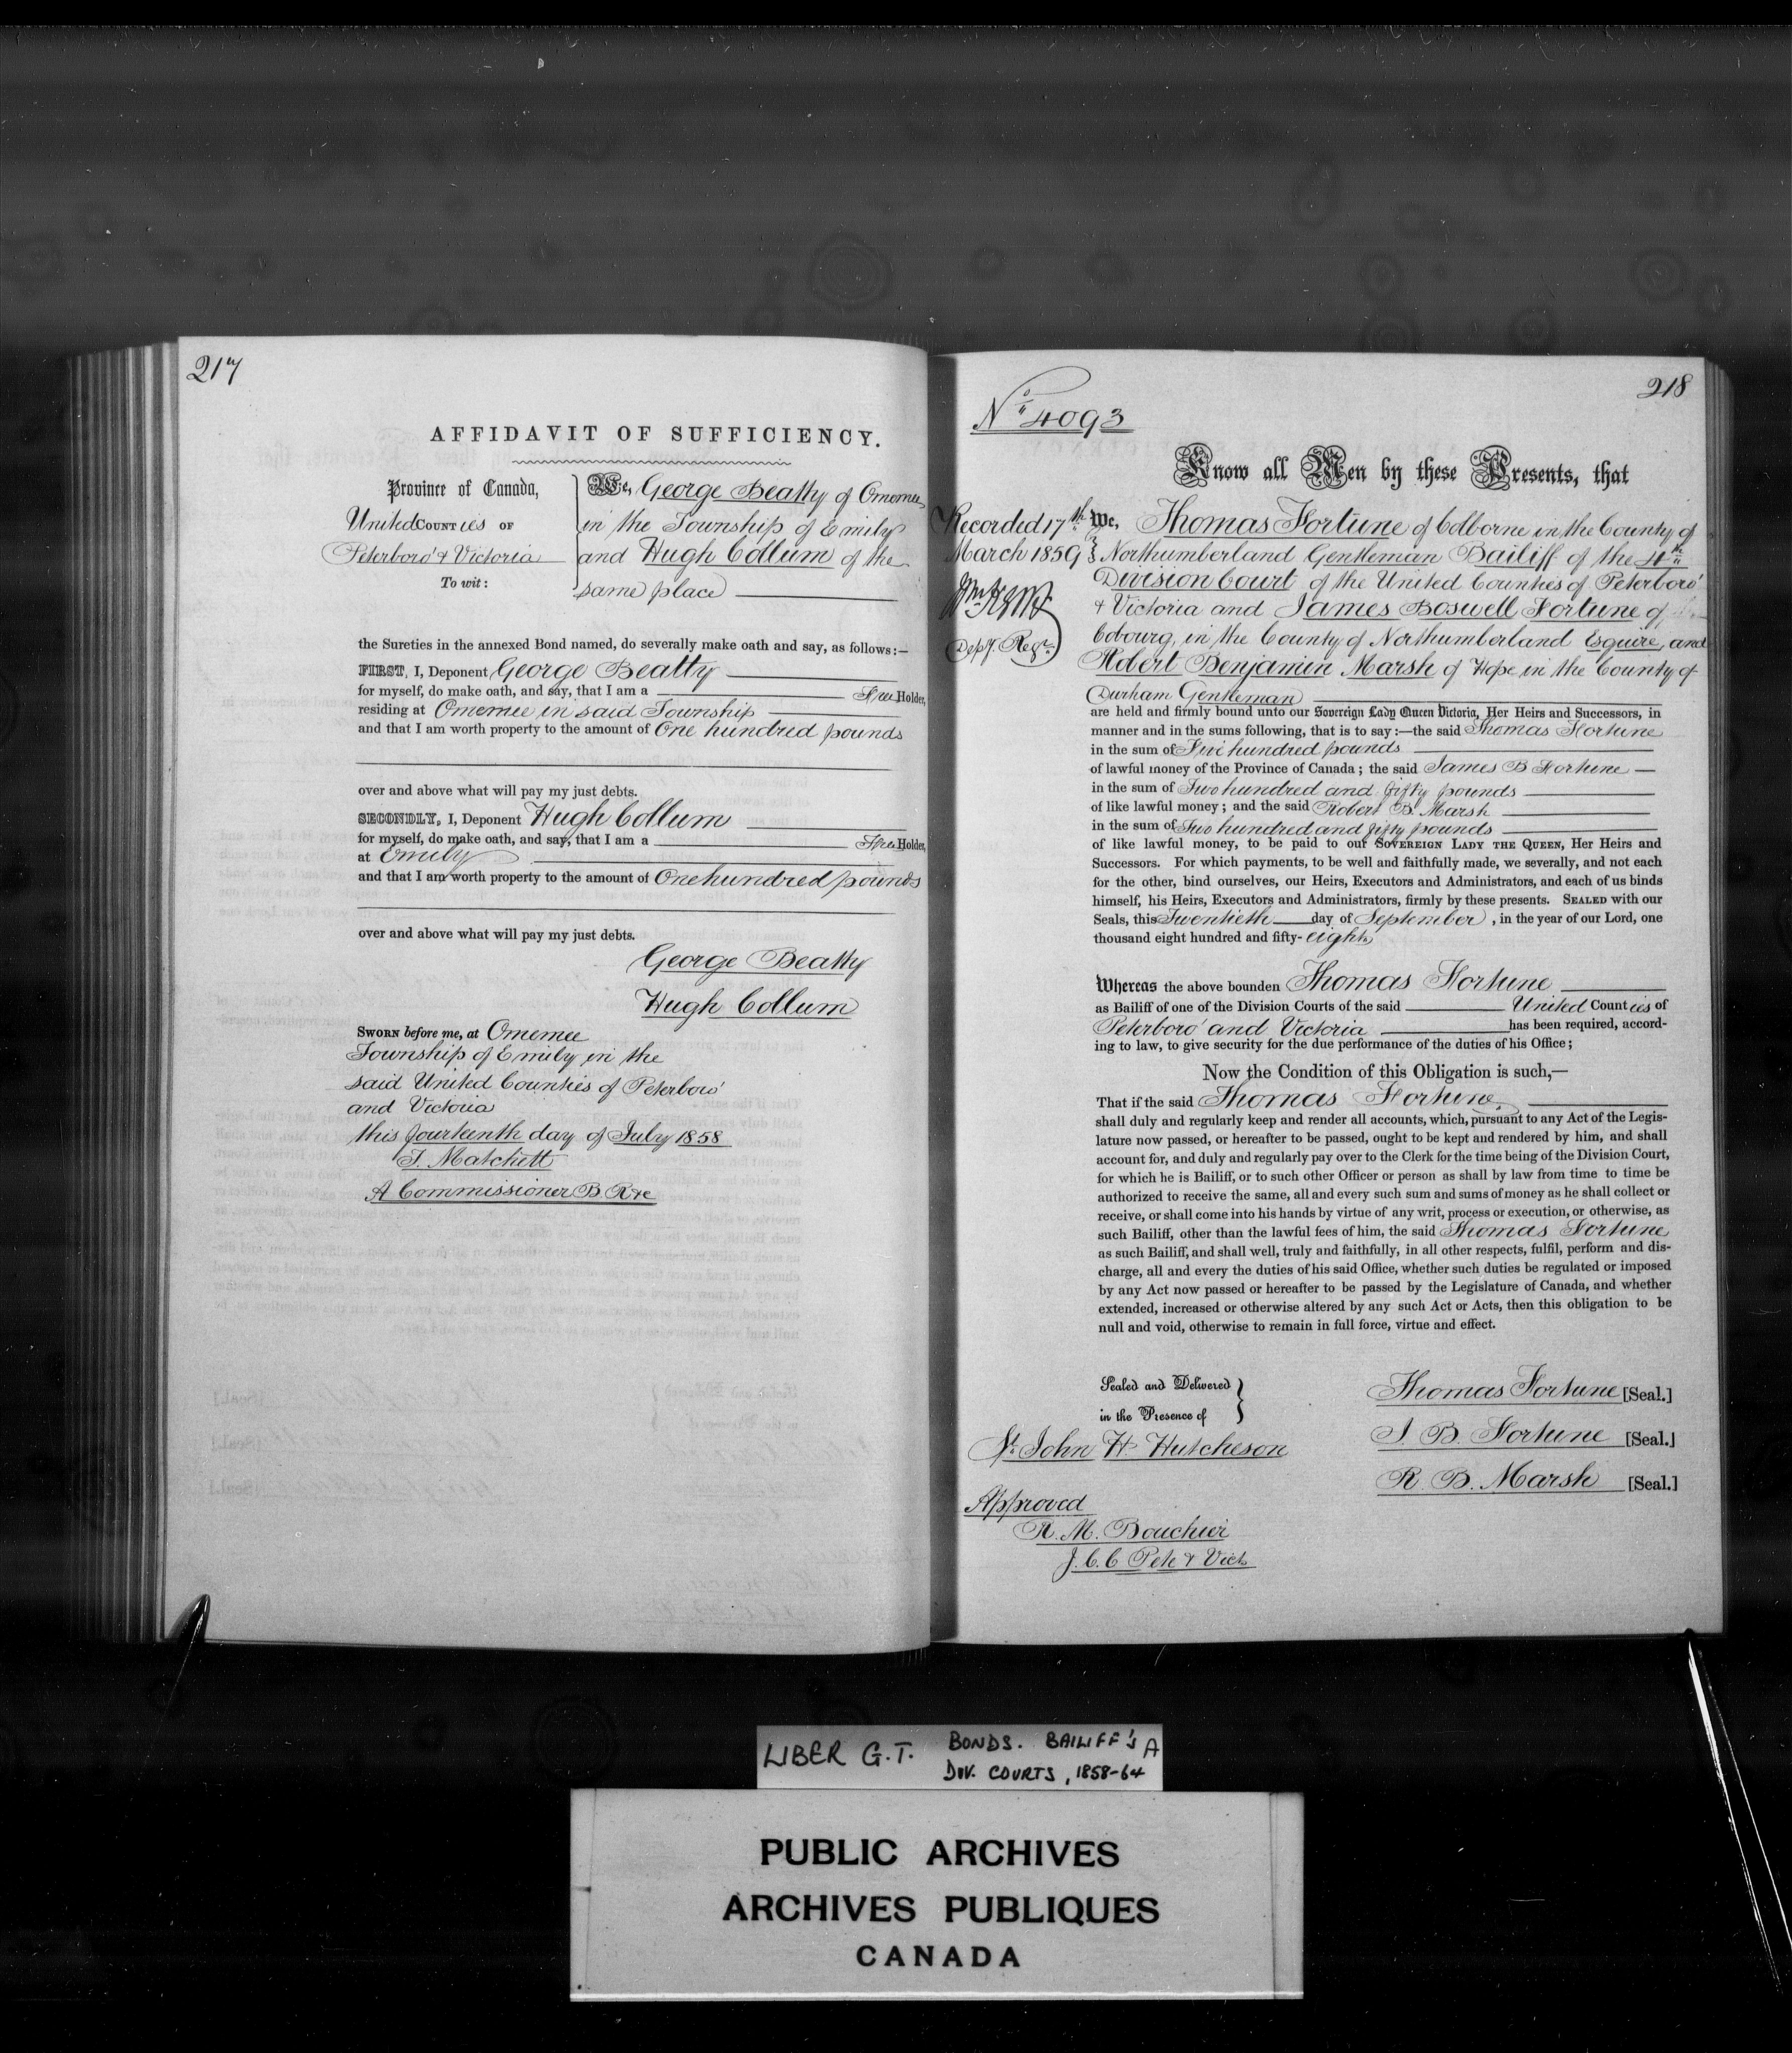 217
AFFIDAVIT OF SUFFICIENCY.
Province of Canada,
United COUNTies OF
Peterboro' & Victoria
To wit:
We, George Beatty of Omemee
in the Township of Emily
and Hugh Collum of the
same place
the Sureties in the annexed Bond named, do severally make oath and say, as follows:—
FIRST, I, Deponent George Beatty
for myself, do make oath, and say, that I am a Free Holder,
residing at Omemee in said Township
and that I am worth property to the amount of One hundred pounds
over and above what will pay my just debts.
SECONDLY, I, Deponent Hugh Collum
for myself, do make oath, and say, that I am a Free Holder,
at Emily
and that I am worth property to the amount of One hundred pounds
over and above what will pay my just debts.
George Beatty
Hugh Collum
SWORN before me, at Omemee
Township of Emily in the
said United Counties of Peterboro'
and Victoria
this fourteenth day of July 1858
T. Matchett
A Commissioner B. R &c
218
No 4093
Know all Men by these Presents, that
Recorded 17th
March 1859
Depy. Regr.
We, Thomas Fortune of Colborne in the County of
Northumberland Gentleman Bailiff of the 4th
Division Court of the United Counties of Peterboro'
& Victoria and James Boswell Fortune of
Cobourg, in the County of Northumberland Esquire, and
Robert Benjamin Marsh of Hope in the County of
Durham Gentleman
are held and firmly bound unto our Sovereign Lady Queen Victoria, Her Heirs and Successors, in
manner and in the sums following, that is to say:—the said Thomas Fortune
in the sum of Five hundred pounds
of lawful money of the Province of Canada; the said James B Fortune
in the sum of Two hundred and fifty pounds
of like lawful money; and the said Robert B. Marsh
in the sum of Two hundred and fifty pounds
of like lawful money, to be paid to our SOVEREIGN LADY THE QUEEN, Her Heirs and
Successors. For which payments, to be well and faithfully made, we severally, and not each
for the other, bind ourselves, our Heirs, Executors and Administrators, and each of us binds
himself, his Heirs, Executors and Administrators, firmly by these presents. SEALED with our
Seals, this Twentieth day of September, in the year of our Lord, one
thousand eight hundred and fifty-eight
Whereas the above bounden Thomas Fortune
as Bailiff of one of the Division Courts of the said United Counties of
Peterboro' and Victoria has been required, accord-
ing to law, to give security for the due performance of the duties of his Office;
Now the Condition of this Obligation is such,—
That if the said Thomas Fortune
shall duly and regularly keep and render all accounts, which, pursuant to any Act of the Legis-
lature now passed, or hereafter to be passed, ought to be kept and rendered by him, and shall
account for, and duly and regularly pay over to the Clerk for the time being of the Division Court,
for which he is Bailiff, or to such other Officer or person as shall by law from time to time be
authorized to receive the same, all and every such sum and sums of money as he shall collect or
receive, or shall come into his hands by virtue of any writ, process or execution, or otherwise, as
such Bailiff, other than the lawful fees of him, the said Thomas Fortune
as such Bailiff, and shall well, truly and faithfully, in all other respects, fulfil, perform and dis-
charge, all and every the duties of his said Office, whether such duties be regulated or imposed
by any Act now passed or hereafter to be passed by the Legislature of Canada, and whether
extended, increased or otherwise altered by any such Act or Acts, then this obligation to be
null and void, otherwise to remain in full force, virtue and effect.
Sealed and Delivered
in the Presence of
St. John H. Hutcheson
Thomas Fortune [Seal.]
J. B. Fortune [Seal.]
R. B. Marsh [Seal.]
Approved
R. M. Bouchier
J. C. C Pete & Vict
LIBER G.T. BONDS. BAILIFF'S A
DIV. COURTS, 1858-64
PUBLIC ARCHIVES
ARCHIVES PUBLIQUES
CANADA